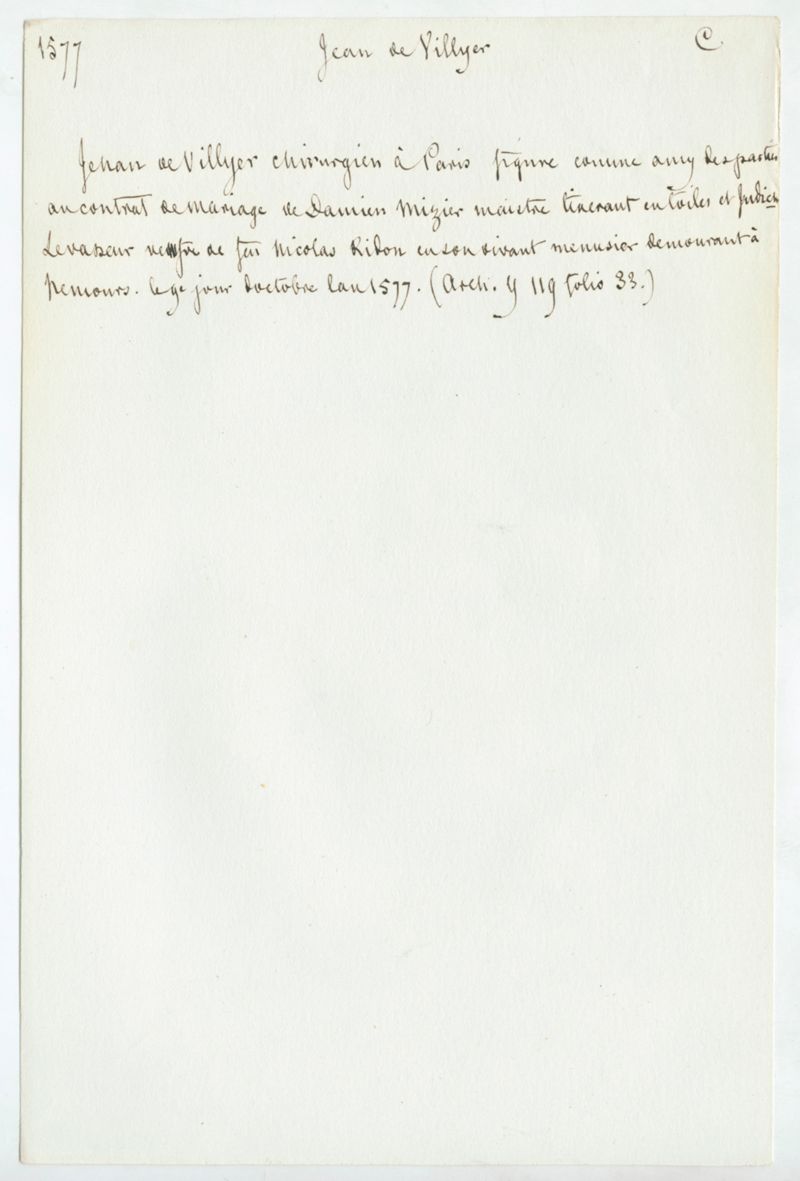 1577 Jean de Villyer C.
Jehan de Villyer chirurgien à Paris figure comme amy des parties
au contrat de mariage de Damien Mizier maistre tixerant en toiles et Judich
Levasseur veufve de feu Nicolas Ridon en son vivant menusier demourant à
Nemours. le 9e jour doctobre lan 1577. (Arch. Y 119 folio 33.)